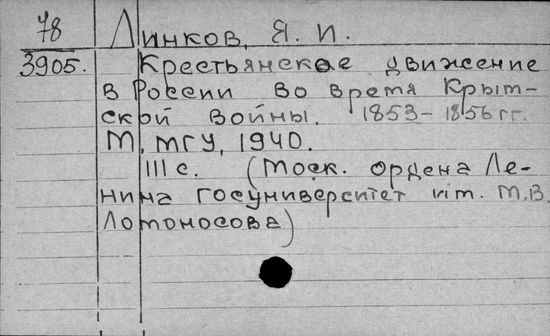 78 Линков, Я. И.
3905. Крестьянское движение
в России во время Крым-
ской войны. 1853-1856 гг.
М, МГУ, 1940.
III с. (Моск. ордена Ле-
нина госуниверситет им. М.В.
Ломоносова)